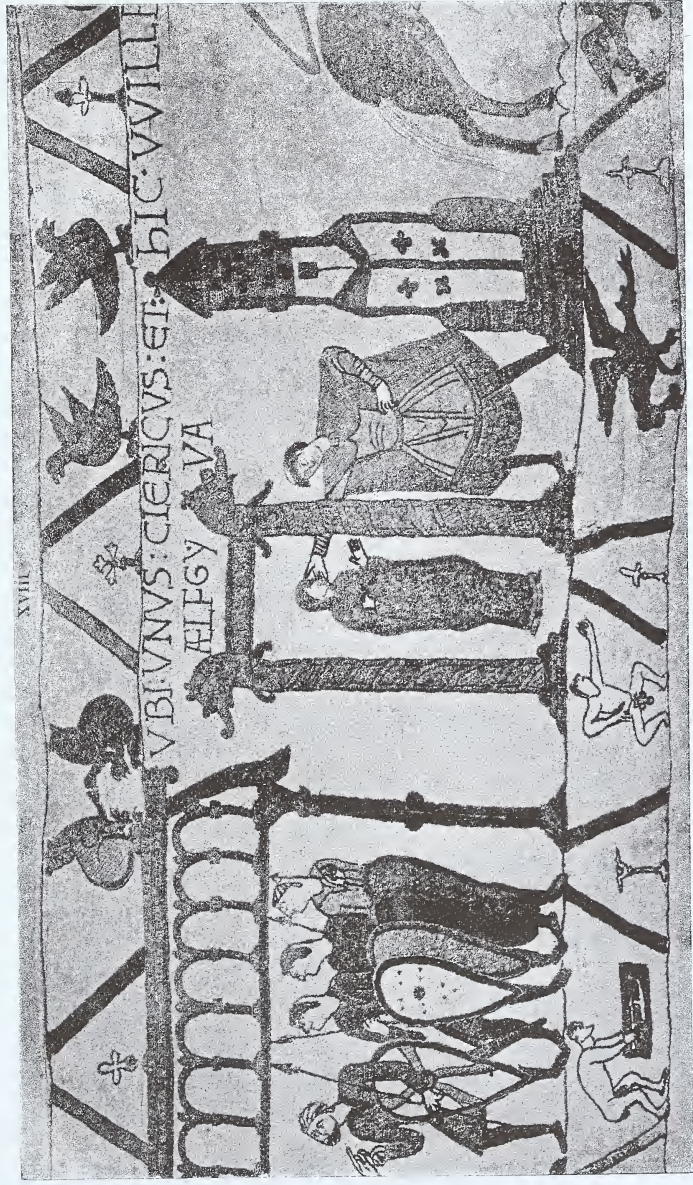 XVIII
VBI:VNVS:CLERICVS:ET:
ÆLFGY VA
hIC·VVILLE